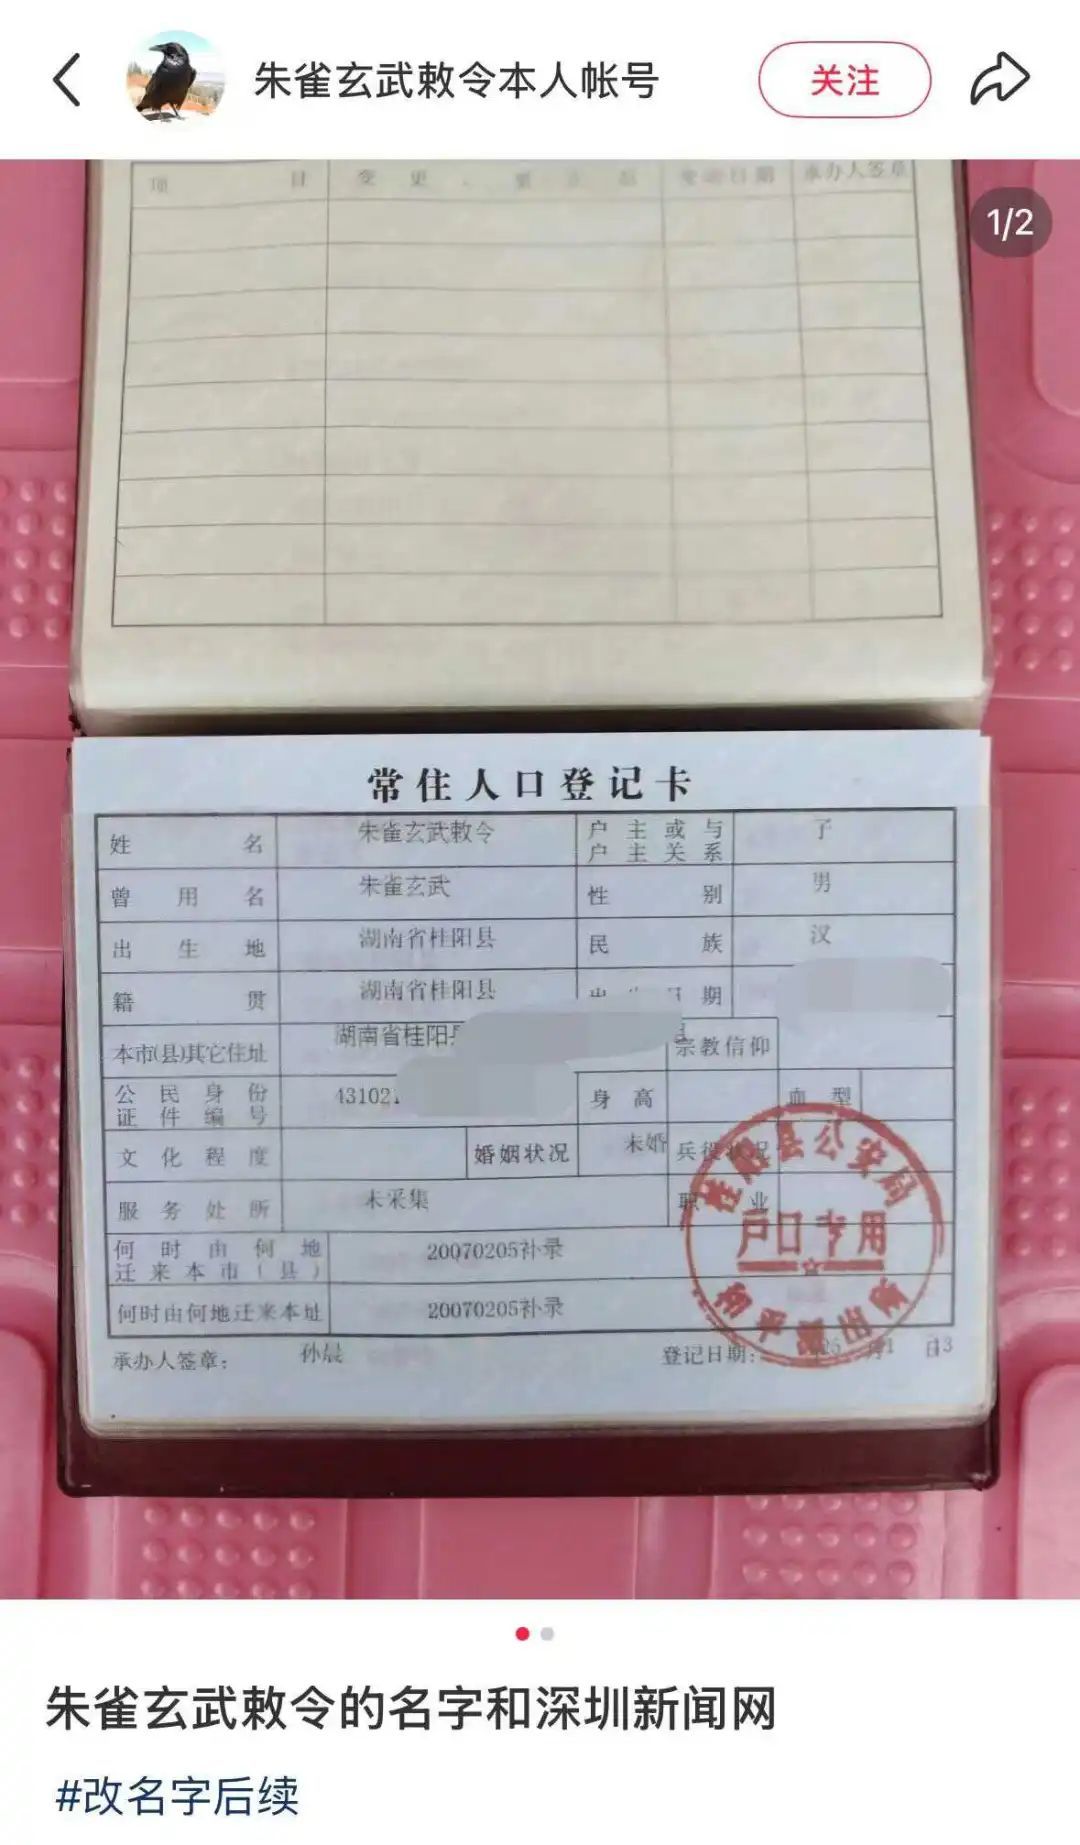 朱雀玄武敕令本人帐号
关注
1/2
项 目 变 更 变动日期 承办人签章
常住人口登记卡
姓名 朱雀玄武敕令 户主或与户主关系 子
曾用名 朱雀玄武 性别 男
出生地 湖南省桂阳县 民族 汉
籍贯 湖南省桂阳县 期
本市(县)其它住址 湖南省桂阳 宗教信仰
公民身份证件编号 43102 身高 血型
文化程度 婚姻状况 未婚 兵役状况
服务处所 未采集 职业
何时由何地迁来本市(县) 20070205补录
何时由何地迁来本址 20070205补录
承办人签章: 孙晨 登记日期: 日3
桂阳县公安局
户口专用
和平派出所
朱雀玄武敕令的名字和深圳新闻网
#改名字后续